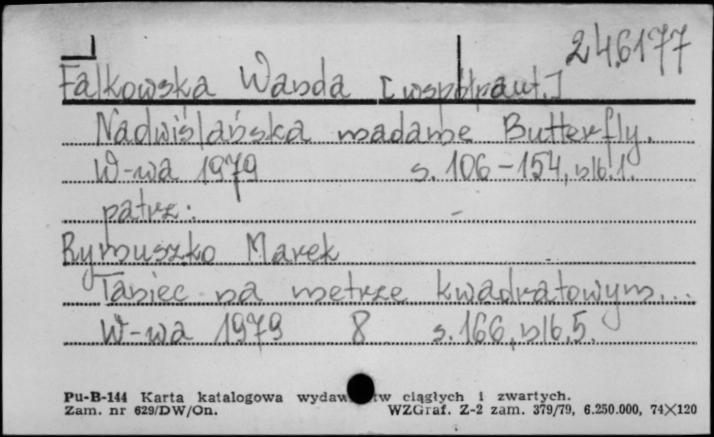 246177
Falkowska Wanda [współaut.]
Nadwiślańska madame Butterfly.
W-wa 1979 s. 106-154, nlb.1.
patrz:
Rymuszko Marek
Taniec na metrze kwadratowym...
W-wa 1979 8 s. 166, nlb. 5.
Pu-B-144 Karta katalogowa wydaw tw ciągłych i zwartych.
Zam. nr 629/DW/On. WZGraf. Z-2 zam. 379/79, 6.250.000, 74×120